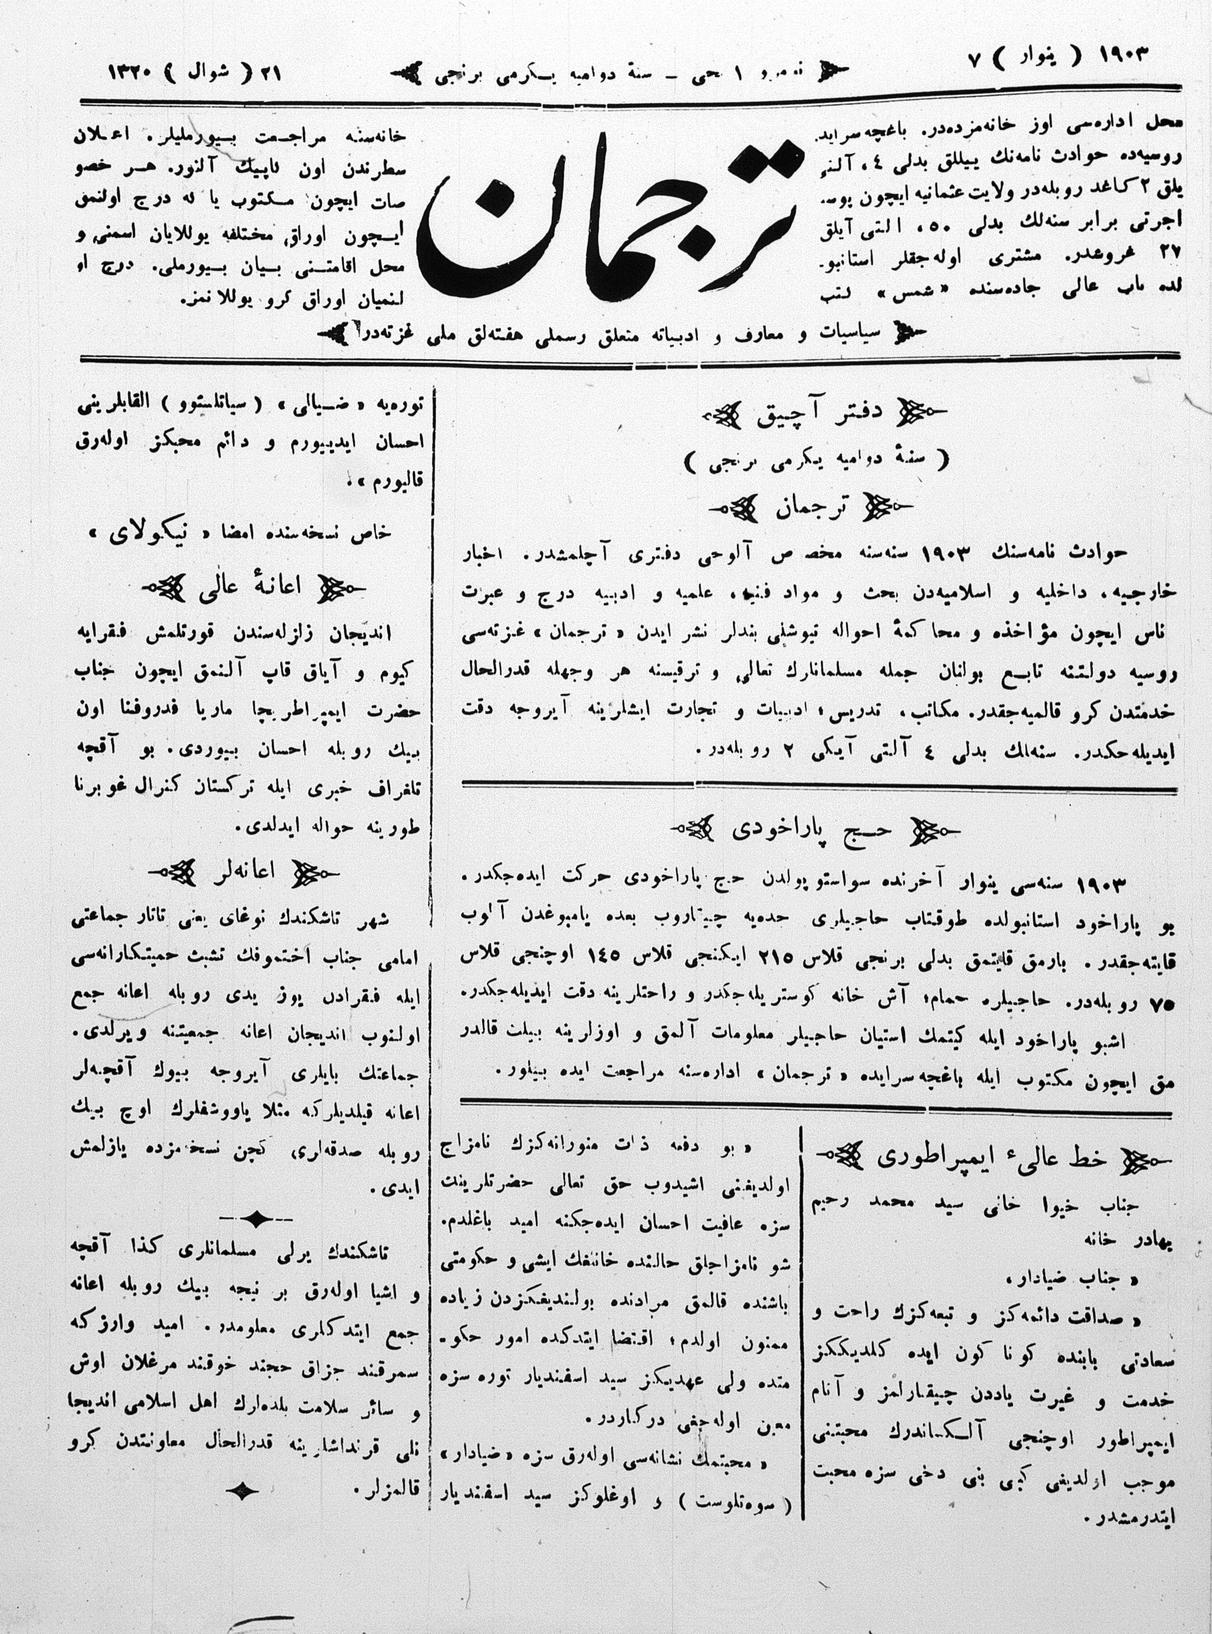 ١٩٠٣ ( ينوار ) ٧
نومرو ١ نجی ـ سنهٔ دواميه يكرمی برنجی
٢١ ( شوال ) ١٣٢٠
محل اداره‌سی اوز خانه‌مزده‌در. باغچه‌سرايد.
روسيه‌ده حوادث نامه‌نك ييللق بدلی ٤، آلتی
يلق ٢ كاغد روبله‌در ولايت عثمانيه ايچون پوسـ
اجرتی برابر سنه‌لك بدلی ٥٠، التی آيلق
٢٧ غروشدر. مشتری اوله‌جقلر استانبو.
لده باب عالی جاده‌سنده «شمس» كتب
ترجمان
خانه‌سنه مراجعت بيورمليلر. اعلان
سطرندن اون كاپيك آلنور. هر خصو
صات ايچون مكتوب يا له درج اولنمق
ايچون اوراق مختلفه يوللايان اسمنی و
محل اقامتنی بيان بيورملی. درج او
لنميان اوراق كرو يوللانمز.
سياسيات و معارف و ادبياته متعلق رسملی هفته‌لق ملی غزته‌در
دفتر آچيق
( سنهٔ دواميه يكرمی برنجی )
ترجمان
حوادث نامه‌سنك ١٩٠٣ سنه‌سنه مخصوص آلوجی دفتری آچلمشدر. اخبار
خارجيه، داخليه و اسلاميه‌دن بحث و مواد فنيه، علميه و ادبيه درج و عبرت
ناس ايچون مؤاخذه و محاكمهٔ احواله تيوشلی بندلر نشر ايدن «ترجمان» غزته‌سی
روسيه دولتنه تابع بولنان جمله مسلمانلرك تعالی و ترقيسنه هر وجهله قدرالحال
خدمتدن كرو قالميه‌جقدر. مكاتب، تدريس، ادبيات و تجارت ايشلرينه آيروجه دقت
ايديله‌جكدر. سنه‌لك بدلی ٤ آلتی آيلكی ٢ روبله‌در.
حج پاراخودی
١٩٠٣ سنه‌سی ينوار آخرنده سواستوپولدن حج پاراخودی حركت ايده‌جكدر.
بو پاراخود استانبولده طوقتاب حاجيلری جده‌يه چيقاروب بعده يامبوغدن آلوب
قايته‌جقدر. بارمق قايتمق بدلی برنجی قلاس ٢١٥ ايكنجی قلاس ١٤٥ اوچنجی قلاس
٧٥ روبله‌در. حاجيلره حمام، آش خانه كوستريله‌جكدر و راحتلرينه دقت ايديله‌جكدر.
اشبو پاراخود ايله كيتمك استيان حاجيلر معلومات آلمق و اوزلرينه بيلت قالدر
مق ايچون مكتوب ايله باغچه‌سرايده «ترجمان» اداره‌سنه مراجعت ايده بيلور.
خط عالیٔ ايمپراطوری
جناب خيوا خانی سيد محمد رحيم
بهادر خانه
« جناب ضيادار،
« صداقت دائمه‌كز و تبعه‌كزك راحت و
سعادتی بابنده كوناكون ايده كلديككز
خدمت و غيرت ياددن چيقارلمز و آنام
ايمپراطور اوچنجی آلكساندرك محبتنی
موجب اولديغی كبی بنی دخی سزه محبت
ايتدرمشدر.
« بو دفعه ذات منورانه‌كزك نامزاج
اولديغنی اشيدوب حق تعالی حضرتلرينك
سزه عافيت احسان ايده‌جكنه اميد باغلدم.
شو نامزاجلق حالنده خانلغك ايشی و حكومتی
باشنده قالمق مرادنده بولنديغكزدن زياده
ممنون اولدم؛ اقتضا ايتدكده امور حكو.
متده ولی عهديكز سيد اسفنديار توره سزه
معين اوله‌جغی دركاردر.
« محبتمك نشانه‌سی اوله‌رق سزه «ضيادار»
( سوه‌تلوست ) و اوغلوكز سيد اسفنديار
توره‌يه «ضيالی» ( سياتلستوو ) القابلرينی
احسان ايدييورم و دائم محبكز اوله‌رق
قاليورم».
خاص نسخه‌سنده امضا « نيكولای »
اعانهٔ عالی
انديجان زلزله‌سندن قورتلمش فقرايه
كيوم و آياق قاپ آلنمق ايچون جناب
حضرت ايمپراطريچا ماريا فدروفنا اون
بيك روبله احسان بيوردی. بو آقچه
تلغراف خبری ايله تركستان كنرال غوبرنا
طورينه حواله ايدلدی.
اعانه‌لر
شهر تاشكندك نوغای يعنی تاتار جماعتی
امامی جناب اختموفك تشبث حميتكارانه‌سی
ايله فقرادن يوز يدی روبله اعانه جمع
اولنوب انديجان اعانه جمعيتنه ويرلدی.
جماعتك بايلری آيروجه بيوك آقچه‌لر
اعانه قيلديلركه مثلا ياووشفلرك اوچ بيك
روبله صدقه‌لری كچن نسخه‌مزده يازلمش
ايدی.
تاشكندك يرلی مسلمانلری كذا آقچه
و اشيا اوله‌رق بر نيجه بيك روبله اعانه
جمع ايتدكلری معلومدر. اميد وارز كه
سمرقند جزاق حجند خوقند مرغلان اوش
و سائر سلامت بلده‌لرك اهل اسلامی انديجا
نلی قرنداشلرينه قدرالحال معاونتدن كرو
قالمزلر.